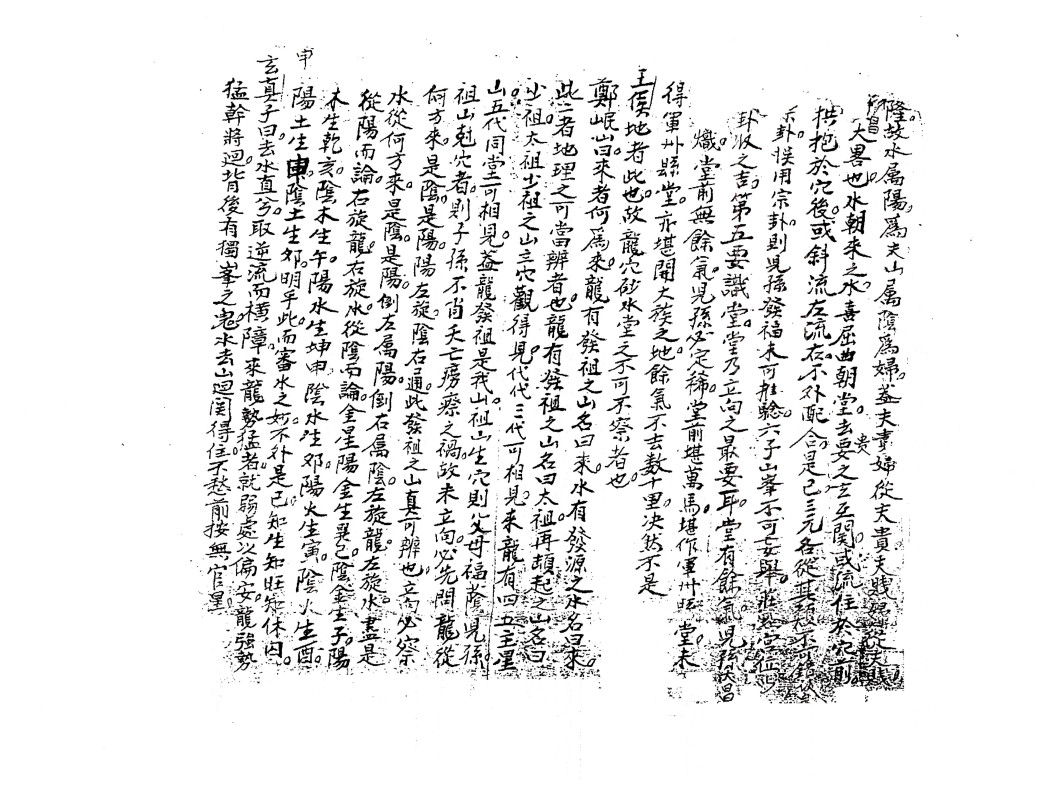 隆故水属陽。爲夫山属陰爲婦。盖夫貴婦從夫貴夫賤婦從夫賤
大畧也水朝来之水。喜屈曲朝堂。去要之玄互関。或流住於穴前
拱抱於穴後或斜流左流右。不外配合是已三元各從其類不可
卦悮用宗卦。則児孫發福未可推驗六子山峯不可妄舉
卦收之吉第五要識堂。堂乃立向之最要耳。堂有餘氣児孫大昌
熾。堂前無餘氣。児孫必定稀堂前堪萬馬堪作軍州縣堂未
得軍州縣堂。亦堪開大族之地餘氣不去数十里。决然不是
王侯地者此也故龍穴砂水堂之不可不察者也
鄭岷山曰来者何爲来。龍有發祖之山名曰来。水有發源之水名曰来
此二者地理之可當辨者也龍有發祖之山名曰太祖。再頓起之山名曰
少祖太祖少祖之山立穴觀得見代代三代可相見来龍有四五三星
山五代同堂可相見盖龍發祖是我山祖山生穴則父母福蔭児孫
祖山尅穴者。則子孫不肖夭亡癆瘵之禍故未立向必先問龍從
何方来。是陰。是陽。陽左旋陰右通。此發祖之山真可辨也立向必察
水從何方来。是陰。是陽。倒左属陽。倒右属陰。左旋龍。左旋水。盡是
從陽而論。右旋龍。右旋水。從陰而論金星陽金生巽巳陰金生子。陽
木生乾亥。陰木生午陽水生坤申陰水生夘陽火生寅。陰火生酉。
申
陽土生申陰土生夘。明乎此。而審水之妙。不外是已知生知旺知休囚。
玄真子曰。去水直兮。取逆流而横障。来龍勢猛者就弱處以偏安。龍強勢
猛幹將迴背後有獨峯之鬼。水去山迴関得住不愁前按無官星。